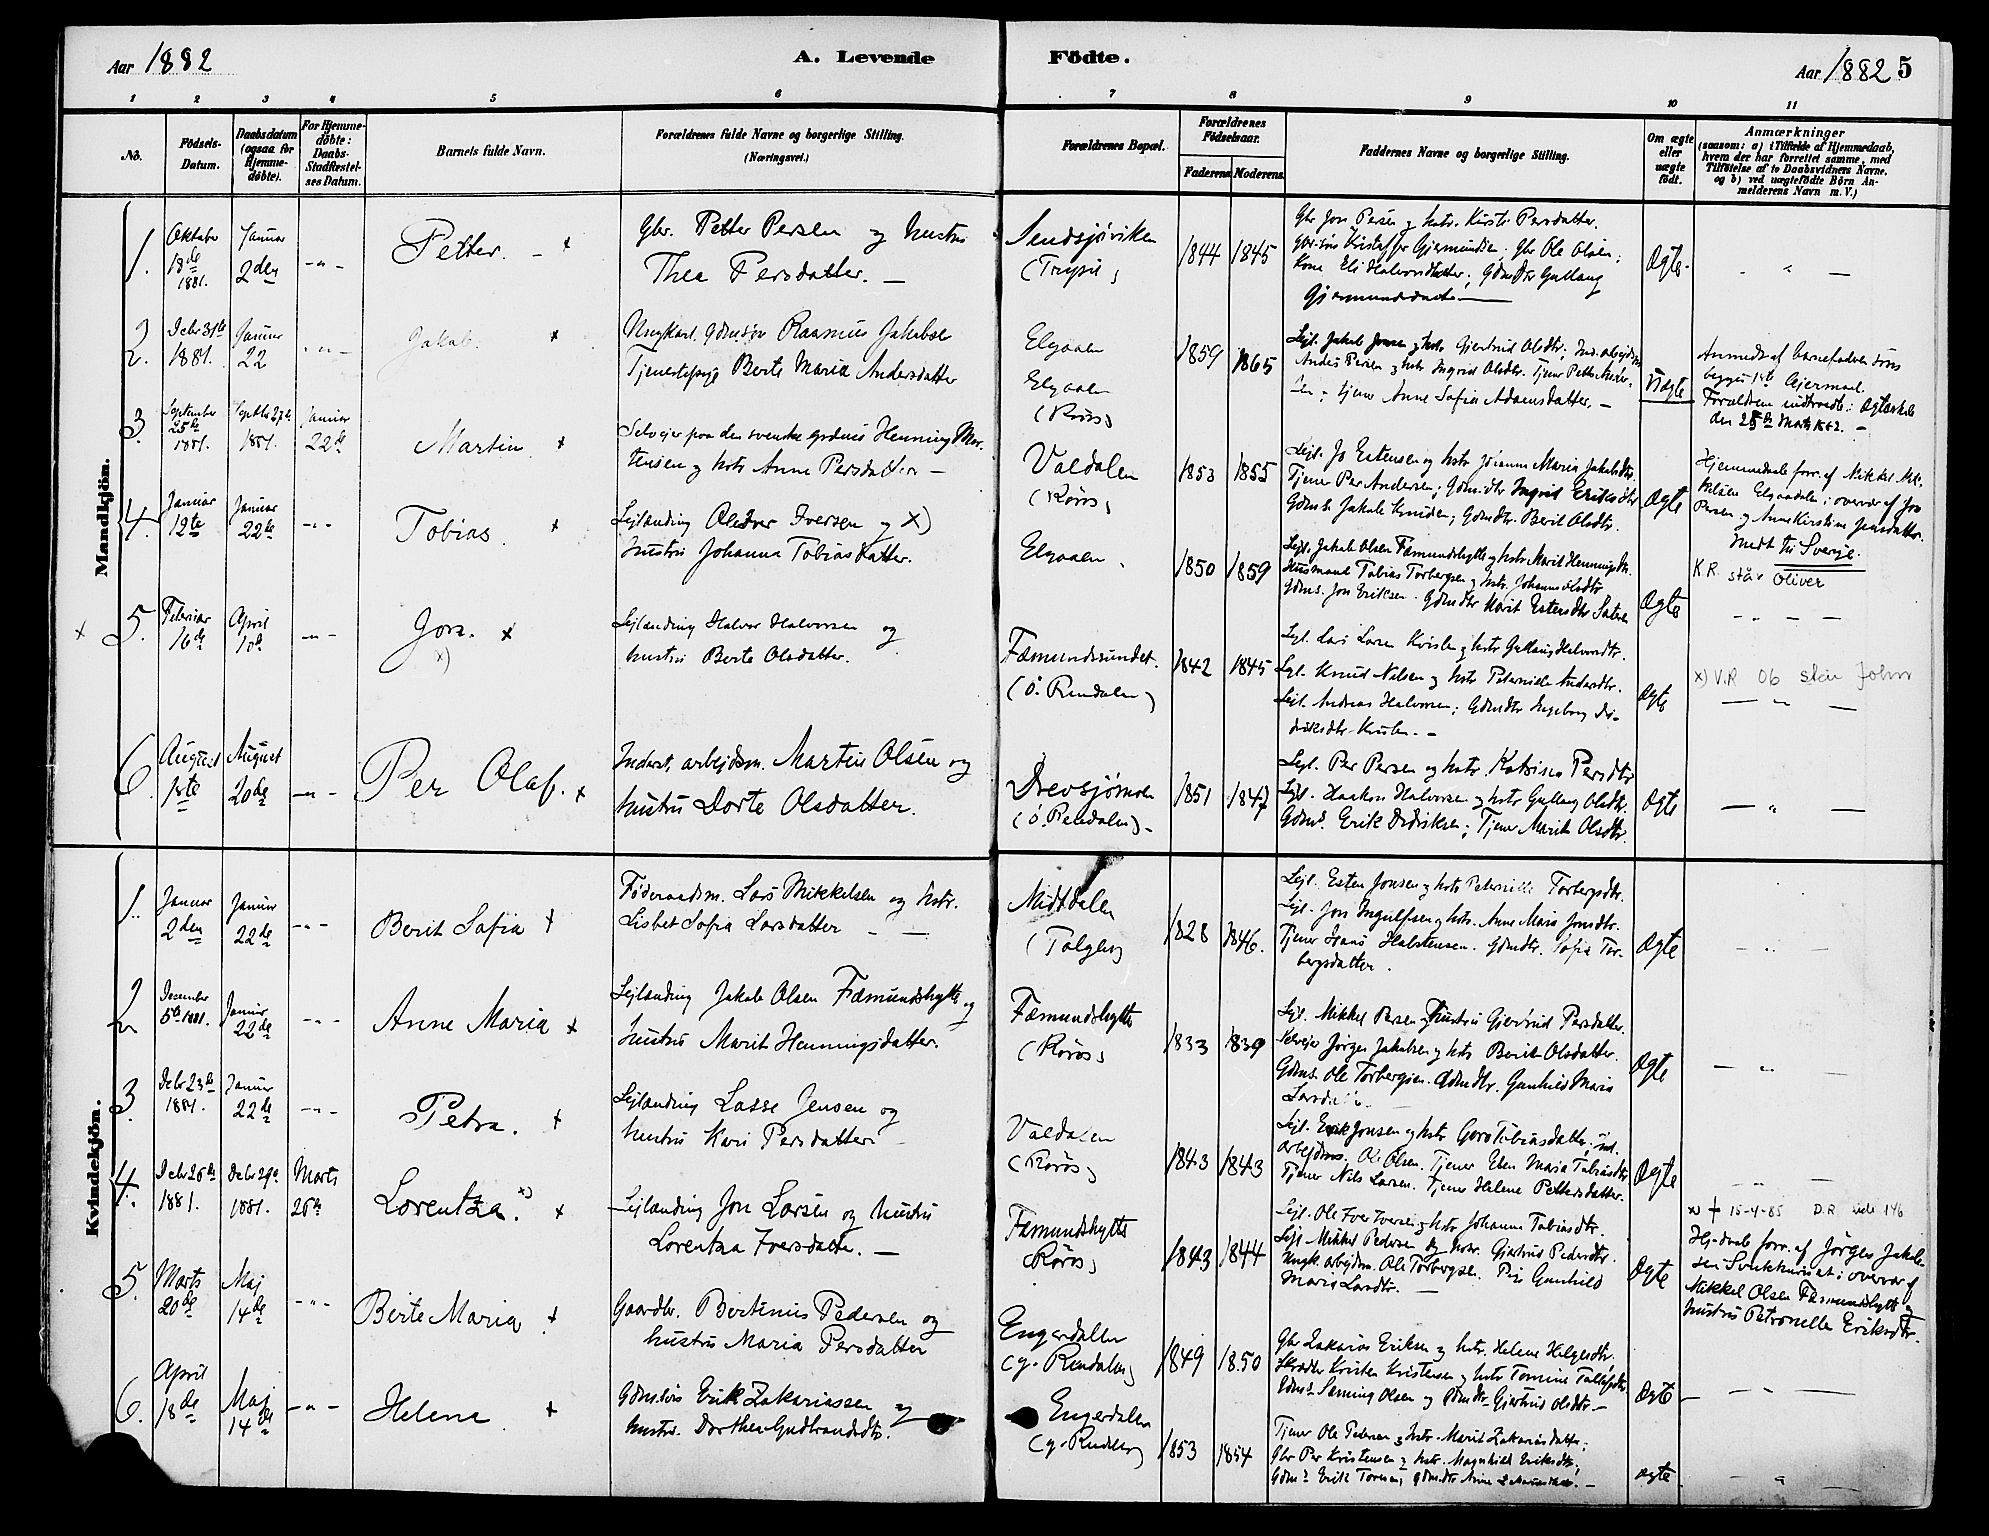 Aar 1882
A. Levende
Födte.
Aar 1882 5
1 2 3 4 5 6 7 8 9 10 11
No.
Födsels-
Datum.
Daabsdatum
(ogsaa for
Hjemme-
döbte).
For Hjemme-
döbte:
Daabs-
Stadfæstel-
ses Datum.
Barnets fulde Navn.
Forældrenes fulde Navne og borgerlige Stilling.
(Næringsvei.)
Forældrenes Bopæl.
Forældrenes
Födselsaar.
Faderens Moderens
Faddernes Navne og borgerlige Stilling.
Om ægte
eller
uægte
födt.
Anmærkninger
(saasom: a) i Tilfælde af Hjemmedaab,
hvem der har forrettet samme, med
Tilföielse af to Daabsvidners Navne,
og b) ved uægtefödte Börn An-
melderens Navn m. V.)
Mandkjön.
1.
Oktober
18de
1881.
Januar
2den
Petter.
Gbr. Petter Persen og hustru
Thea Persdatter.
Sendsjöviken
(Trysil)
1844 1845
Gbr Jon Persen og hstr. Kirsti Persdatter.
Gbrsön Kristoffer Gjermundsen; Gbr Ole Olsen;
Kone Eli Halvorsdatter; Gdmdtr Gullaug
Gjermundsdatter
Ægte
2.
Debr 31te
1881.
Januar
22
Jakob.
Ungkarl Gdmsön Rasmus Jakobse
Tjenestepige Berte Maria Andersdatter
Elgaaen
Elgaaen
(Röros)
1859 1865
Lejl. Jakob Jonsen og hstr Gjertrud Olsdtr; Ind. arbejdsm
Anders Persen og hstr Ingrid Olsdtr. Tjener Petter Ander-
sen; tjener Anne Sofia Adamsdatter.
Uægte
Anmeldt af barnefaderen som
begges 1ste Lejermaal.
Forældrene indtraadte i Ægteskab
den 25de Marts 1882.
3.
September
25de
1881.
Septbr 27de
1881.
Januar
22de
Martin
Selvejer paa den svenske grænse Henning Mor-
tensen og hstr Anne Persdatter
Valdalen
(Röros)
1853 1855
Lejl. Jo Estensen og hstr Johanna Maria Jakobsdtr
Tjener Per Andersen; Gdmdtr Ingrid Eriksdtr
Gdms. Jakob Knudsen; Gdmdtr. Berit Olsdtr.
Ægte
Hjemmedaab forr. af Mikkel Mik-
kelsen Elgaadalen i overvær af Jon
Persen og Anne Kirstine Jensdatter.
Medt til Sverige.
4.
Januar
12te
Januar
22de
Tobias.
Lejlænding Oledver Iversen og X)
hustru Johanna Tobiasdatter.
Elgaaen
1850 1859
Lejl. Jakob Olsen Fæmundshytte og hstr Marit Henningsdtr.
Husmand Tobias Torbergsen og hstr. Johanna Olsdtr
Gdms. Jon Eriksen. Gdmdtr Marit Estensdtr Sætren
Ægte
K.R. står Oliver
x 5.
Februar
16de
April
10de
Jon.
x)
Lejlænding Halvor Halvorsen og
hustru Berte Olsdatter.
Fæmundssundet.
(ö. Rendalen)
1842 1845
Lejl. Lars Larsen Kvislen og hstr Gullaug Halvorsdtr.
Lejl. Knud Nilsen og hstr Peternille Andersdtr.
Lejl. Andreas Halvorsen; Gdmdtr Ingeborg Di-
Ægte
x) V.R 06 står John
6.
August
1ste
August
20de
Per Olaf.
Inderst, arbejdsm. Martin Olsen og
hustru Dorte Olsdatter.
Drevsjömoen
(ö. Rendalen)
1851 1847
Lejl. Per Persen og hstr. Katrina Persdtr
Lejl. Haakon Halvorsen og hstr Gullaug Olsdtr.
Gdms. Erik Didriksen; Tjener Marit Olsdtr.
Ægte
Kvindekjön.
1.
Januar
2den
Januar
22de
Berit Sofia
Föderaadsm. Lars Mikkelsen og hstr.
Lisbet Sofia Larsdatter
Midtdalen
(Tolgen)
1828 1846.
Lejl. Esten Jonsen og hstr Peternille Torbergsdtr.
Lejl. Jon Ingulfsen og hstr. Anne Maria Jonsdtr.
Tjener Halstensen. Gdmdtr. Sofia Tor-
bergsdatter.
Ægte
2
December
5te 1881.
Januar
22de
Anne Maria
Lejlænding Jakob Olsen Fæmundshytte og
hustru Marit Henningsdatter.
Fæmundshytte
(Röros)
1833 1839
Lejl. Mikkel Persen og hustru Gjertrud Persdatter.
Selvejer Jörgen Jakobsen og hstr Berit Olsdatter.
Gdms. Ole Torbergsen. Gdmdtr. Gunhild Maria
Larsdatter
Ægte
3.
Debr 23de
1881.
Januar
22de
Petra.
Lejlænding Lasse Jensen og
hustru Kari Persdatter
Valdalen
(Röros)
1843 1843
Lejl. Erik Jonsen og hstr Goro Tobiasdatter; ind.
arbejdsm. Ole Olsen. Tjener Elen Maria Tobiasdtr
Tjener Nils Larsen. Tjener Helene Pettersdatter.
Ægte
4.
Debr 26de
1881.
Debr 29de
1881.
Marts
26de
Lorentza. x)
Lejlænding Jon Larsen og hustru
Lorentza Iversdatter.
Fæmundshytte
(Röros)
1843 1844
Lejl. Ole Iver Iversen og hstr Johanna Tobiasdtr.
Lejl Mikkel Pedersen og hstr. Gjertrud Pedersdtr.
Ungk. arbejdsm. Ole Torbergsen. Pige Gunhild
Maria Larsdtr.
Ægte
x) † 15-4-85 D.R. side 146
Hj-daab forr. af Jörgen Jakob-
sen i overvær af
Mikkel Olsen Fæmundshytte og
hustru Petronelle Eriksdtr.
5.
Marts
20de
Maj
14de
Berte Maria
Gaardbr. Bertinus Pedersen og
hustru Maria Persdatter
Engerdalen
(y. Rendalen)
1849 1850
Gbr Zakarias Eriksen og hstr. Helene Helgesdtr.
Skrædder Kristen Kristensen og hstr Tomine Tollefsdtr
Gdms. Sæming Olsen og Gdmdtr Gjertrud Olsdtr.
Ægte
6.
April
18de
Maj
14de
Helene
Gdmsön Erik Zakariassen og
hustru Dorthea Gudbrandsdtr.
Engerdalen
(y. Rendalen)
1853 1854
Tjener Ole Pedersen og hstr. Marit Zakariasdatter;
Gbr Per Kristensen og hstr. Magnhild Eriksdtr;
Gdms Erik Gdmdtr Anne Zakariasdtr.
Ægte